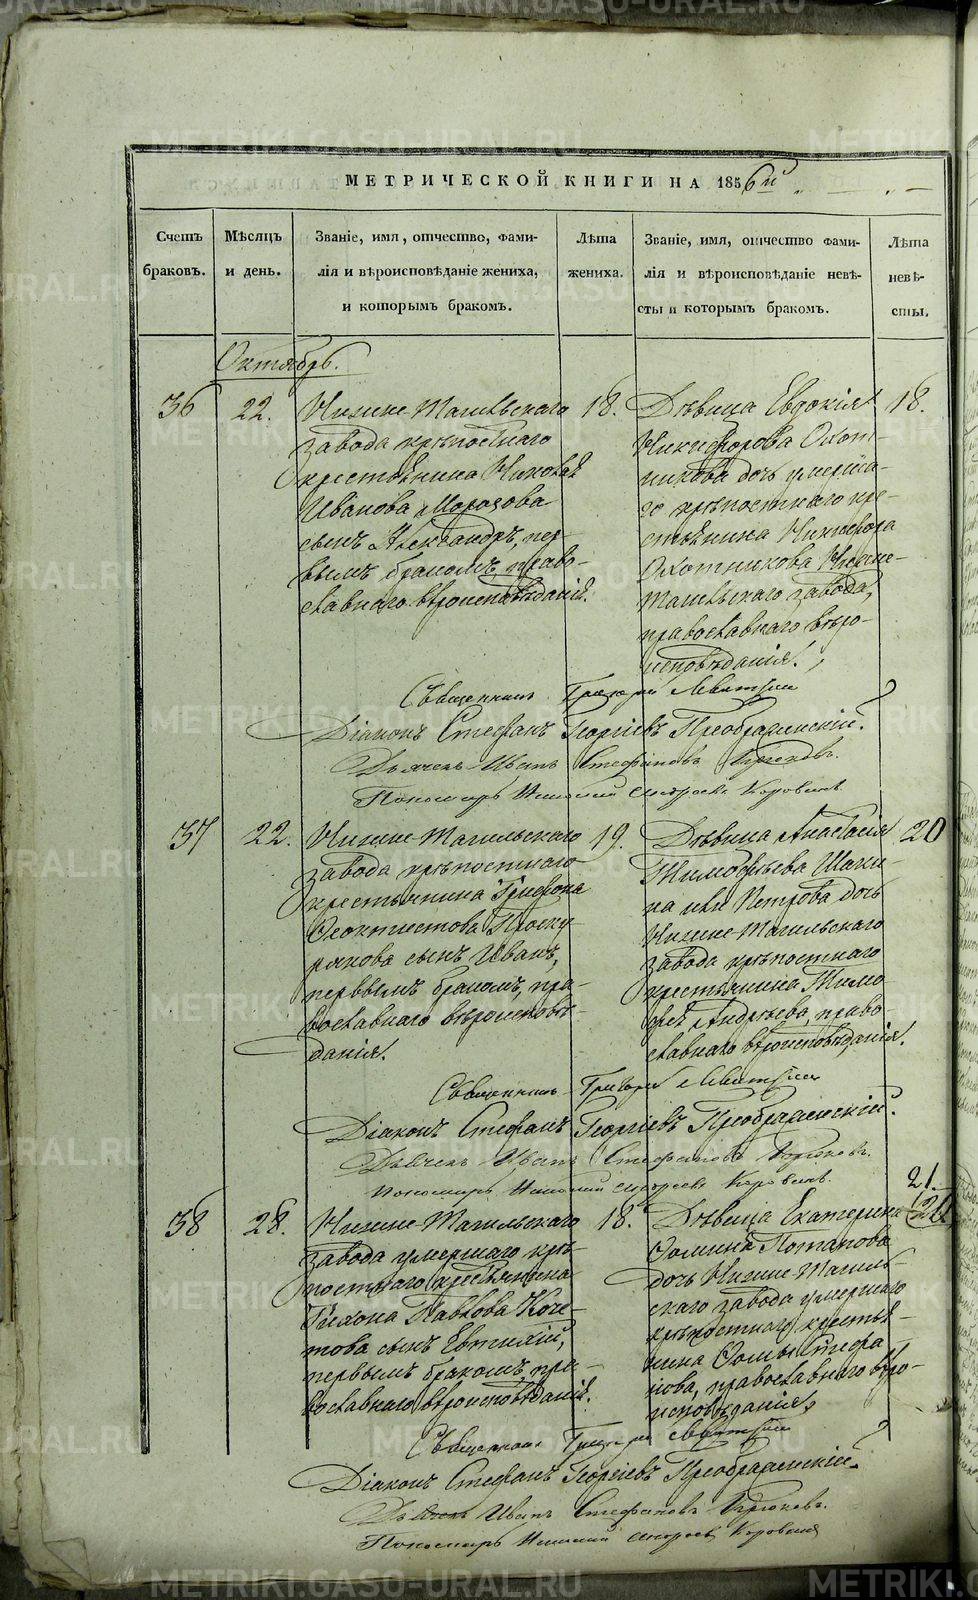 МЕТРИЧЕСКОЙ КНИГИ НА 1856й
Счетъ браковъ.
Мѣсяцъ и день.
Званіе, имя, отчество, фами-
лія и вѣроисповѣданіе жениха,
и которымъ бракомъ.
Лѣта жениха.
Званіе, имя, отчество фами-
лія и вѣроисповѣданіе невѣ-
сты и которымъ бракомъ.
Лѣта невѣ-
сты.
Октябрь.
36
22.
Нижне-Тагильскаго
завода крѣпостнаго
крестьянина Николая
Иванова Морозова
сынъ Александръ, пер-
вымъ бракомъ, право-
славнаго вѣроисповѣданія.
18.
Дѣвица Евдокія
Никифорова Охот-
никова дочь умерша-
го крѣпостнаго кре-
стьянина Никифора
Охотникова Нижне-
Тагильскаго завода,
православнаго вѣро-
исповѣданія.
18.
Священникъ Григорій
Діаконъ Стефанъ Георгіевъ Преображенскій.
Дьячекъ Иванъ Стефановъ
Пономарь Андреевъ Коровинъ
37
22.
Нижне-Тагильскаго
завода крѣпостнаго
крестьянина Трифона
Феоктистова Проску-
рякова сынъ Иванъ,
первымъ бракомъ, пра-
вославнаго вѣроисповѣ-
данія.
19.
Дѣвица Анастасія
Тимофѣева
или Петрова дочь
Нижне-Тагильскаго
завода крѣпостнаго
крестьянина Тимо-
фея Андрѣева, право-
славнаго вѣроисповѣданія.
20
Священникъ Григорій
Діаконъ Стефанъ Георгіевъ Преображенскій.
Дьячекъ Иванъ Стефановъ
Пономарь Андреевъ Коровинъ.
38
28.
Нижне-Тагильскаго
завода умершаго крѣ-
постнаго крестьянина
Тихона Павлова Коче-
това сынъ Евтихій,
первымъ бракомъ, пра-
вославнаго вѣроисповѣданія.
18.
Дѣвица Екатерина
Фомина Потапова
дочь Нижне-Тагиль-
скаго завода умершаго
крѣпостнаго крестья-
нина Фомы Стефа
нова, православнаго вѣро-
исповѣданія,
21.
Священникъ Григорій
Діаконъ Стефанъ Георгіевъ Преображенскій.
Дьячекъ Иванъ Стефановъ
Пономарь Андреевъ Коровинъ
METRIKI.GASO-URAL.RU